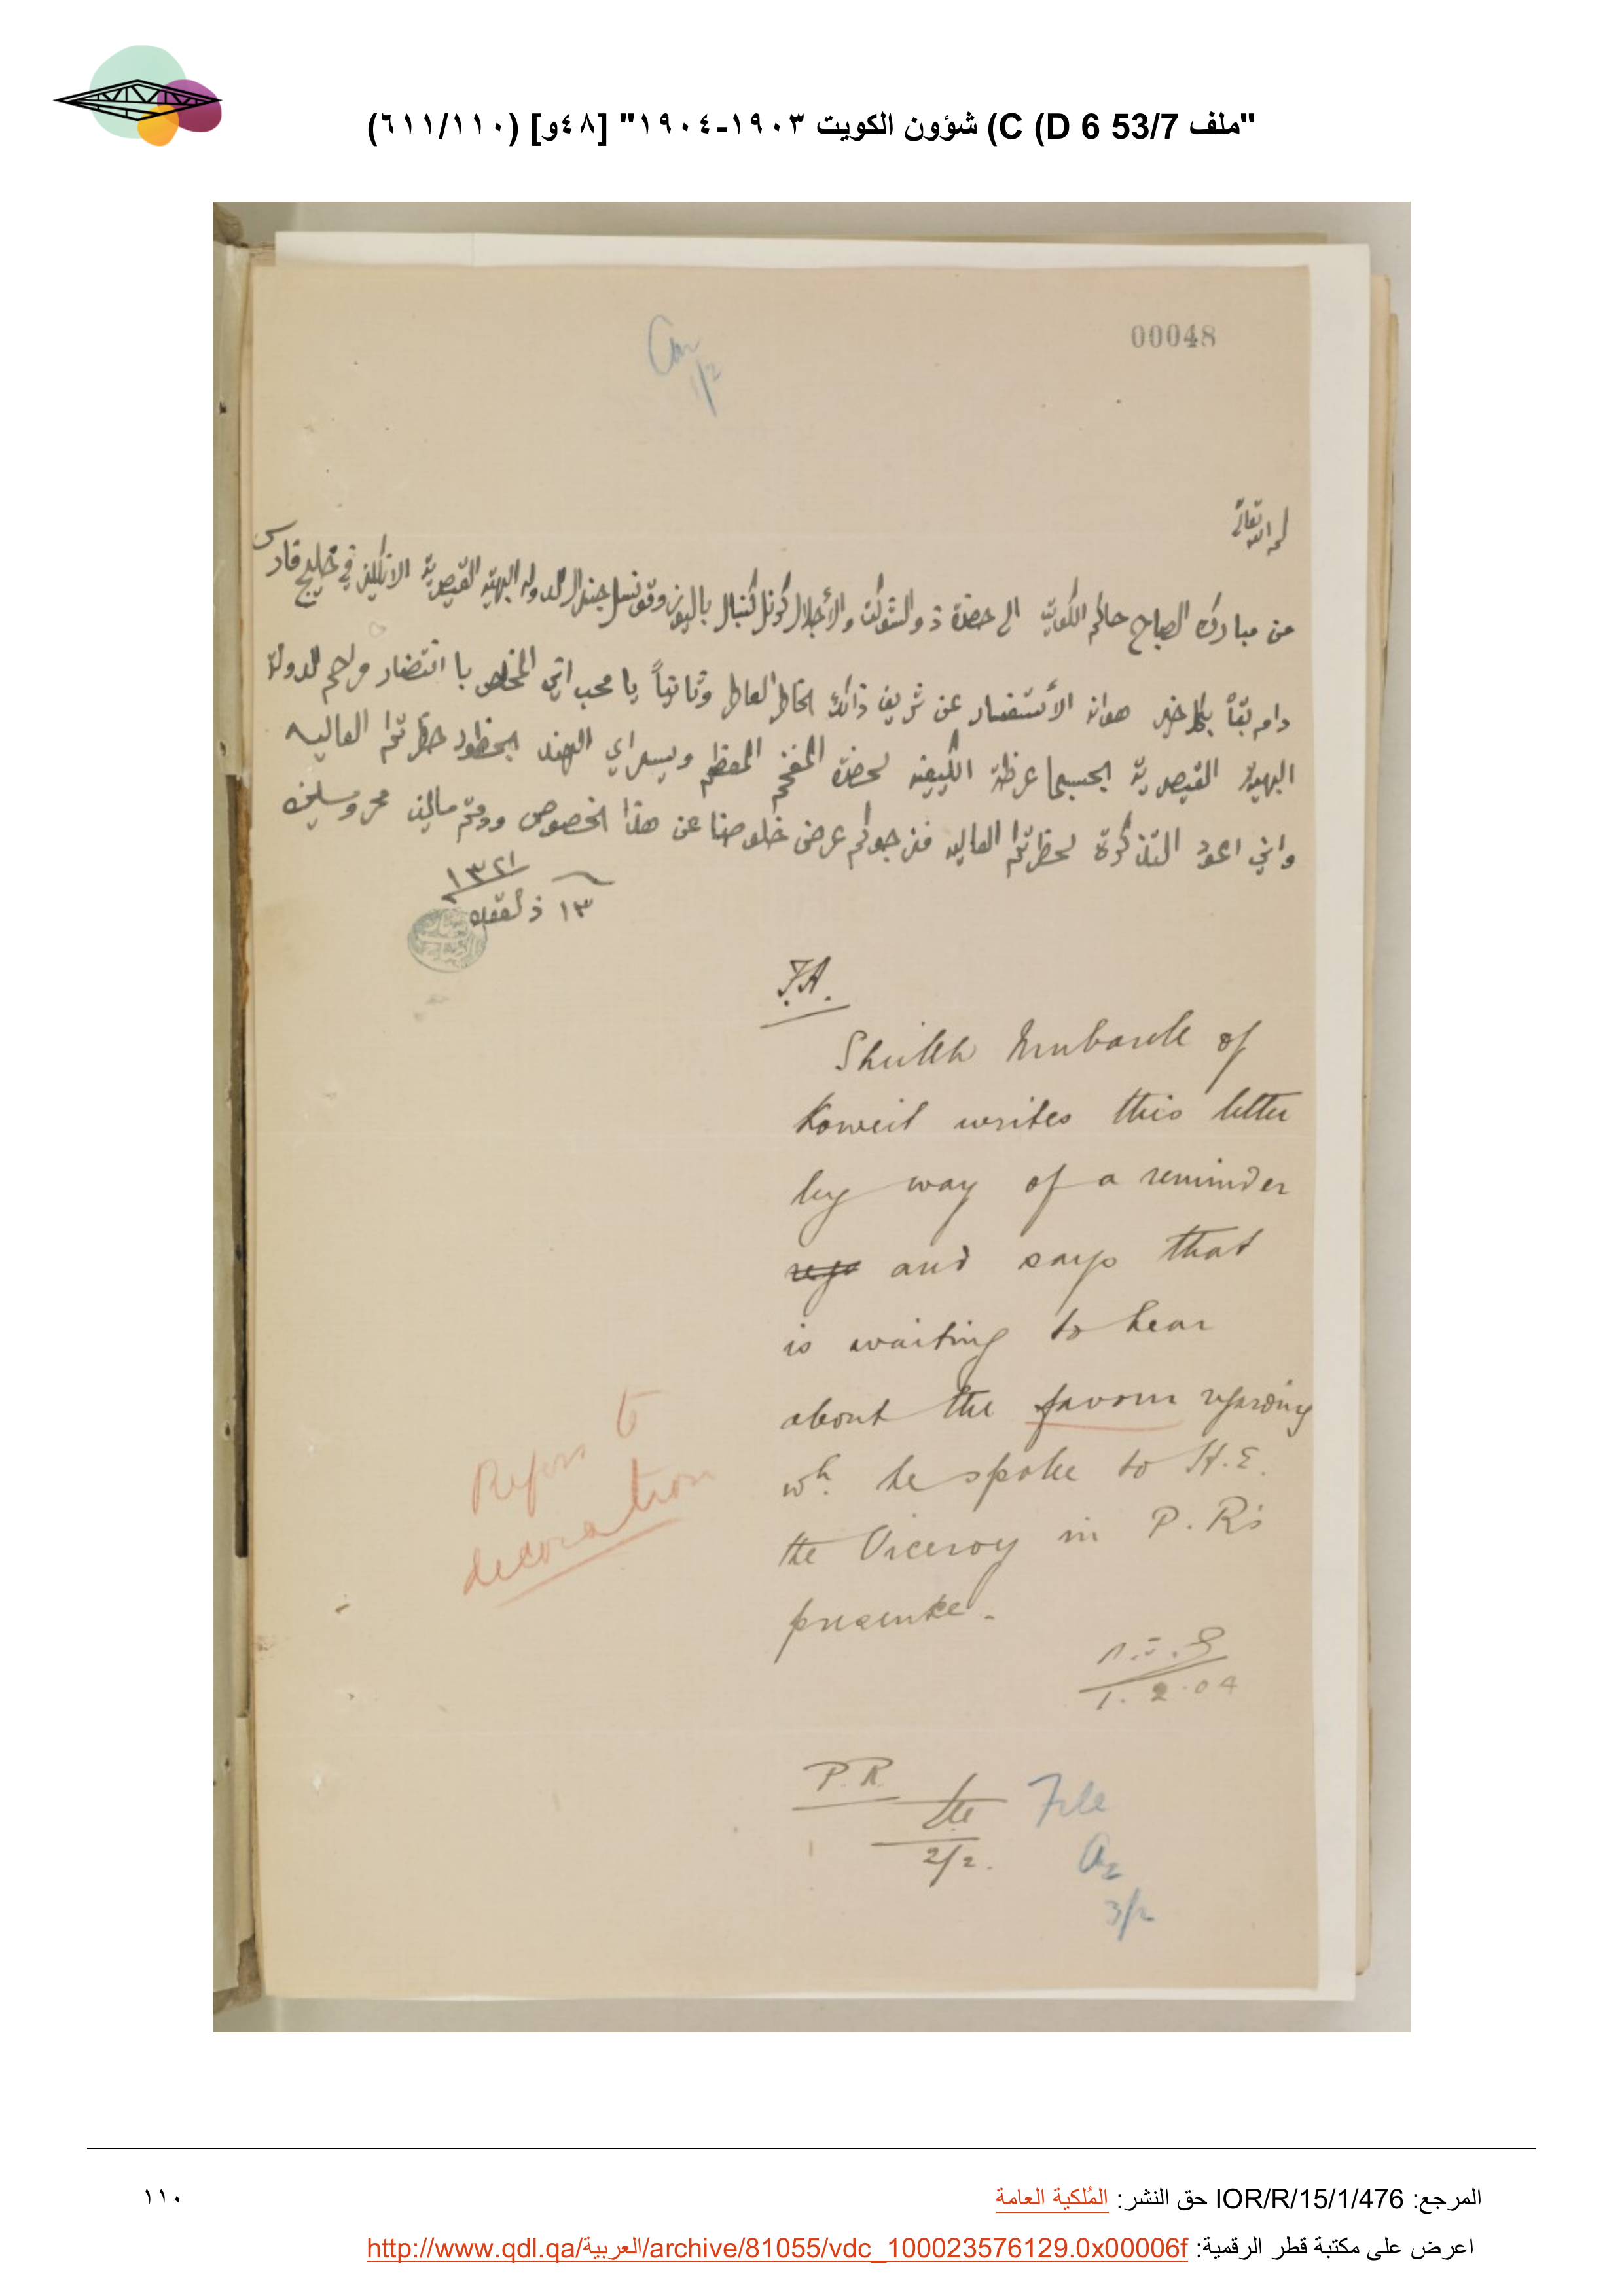 "ملف 53/7 D 6) C) شؤون الكويت ١٩٠٣-١٩٠٤" [٤٨و] (٦١١/١١٠)
00048
لحمد الله تعالى
من مبارك الصباح حاكم الكويت الى حضرة ذو الشوكت والأجلال كرنل كنبال باليوز وقونسل جنرال الدوله البهيه القيصرية الانكليز في خليج فارس
دام بقأ بلا خير هوانه الأستفسار عن شريف ذاتك الخاطر العاطر وثانياً يا محب اني المخلص با انتضار مراحم الدولة
البهية القيصرية بحسبما عرظة الكيفيه لحضرة المفخم المعظم ويسراي الهند بحظور حظرتكم العاليه
واني اعود التذكرة لحظرتكم العاليه فنرجوكم عرض خلوصنا عن هذا الخصوص ودمتم سالمين محروسين
١٣ ذلقعده
١٣٢١
F.A.
Sheikh Mubarak of
Koweit writes this letter
by way of a reminder
and says that
is waiting to hear
about the favour regarding
wh. he spoke to H.E.
the Viceroy in P.R's
presence.
1.2.04
Refers to
decoration
P.R.
2/2.
File
3/2
المرجع: IOR/R/15/1/476 حق النشر: المُلكية العامة
١١٠
اعرض على مكتبة قطر الرقمية: http://www.qdl.qa/العربية/archive/81055/vdc_100023576129.0x00006f